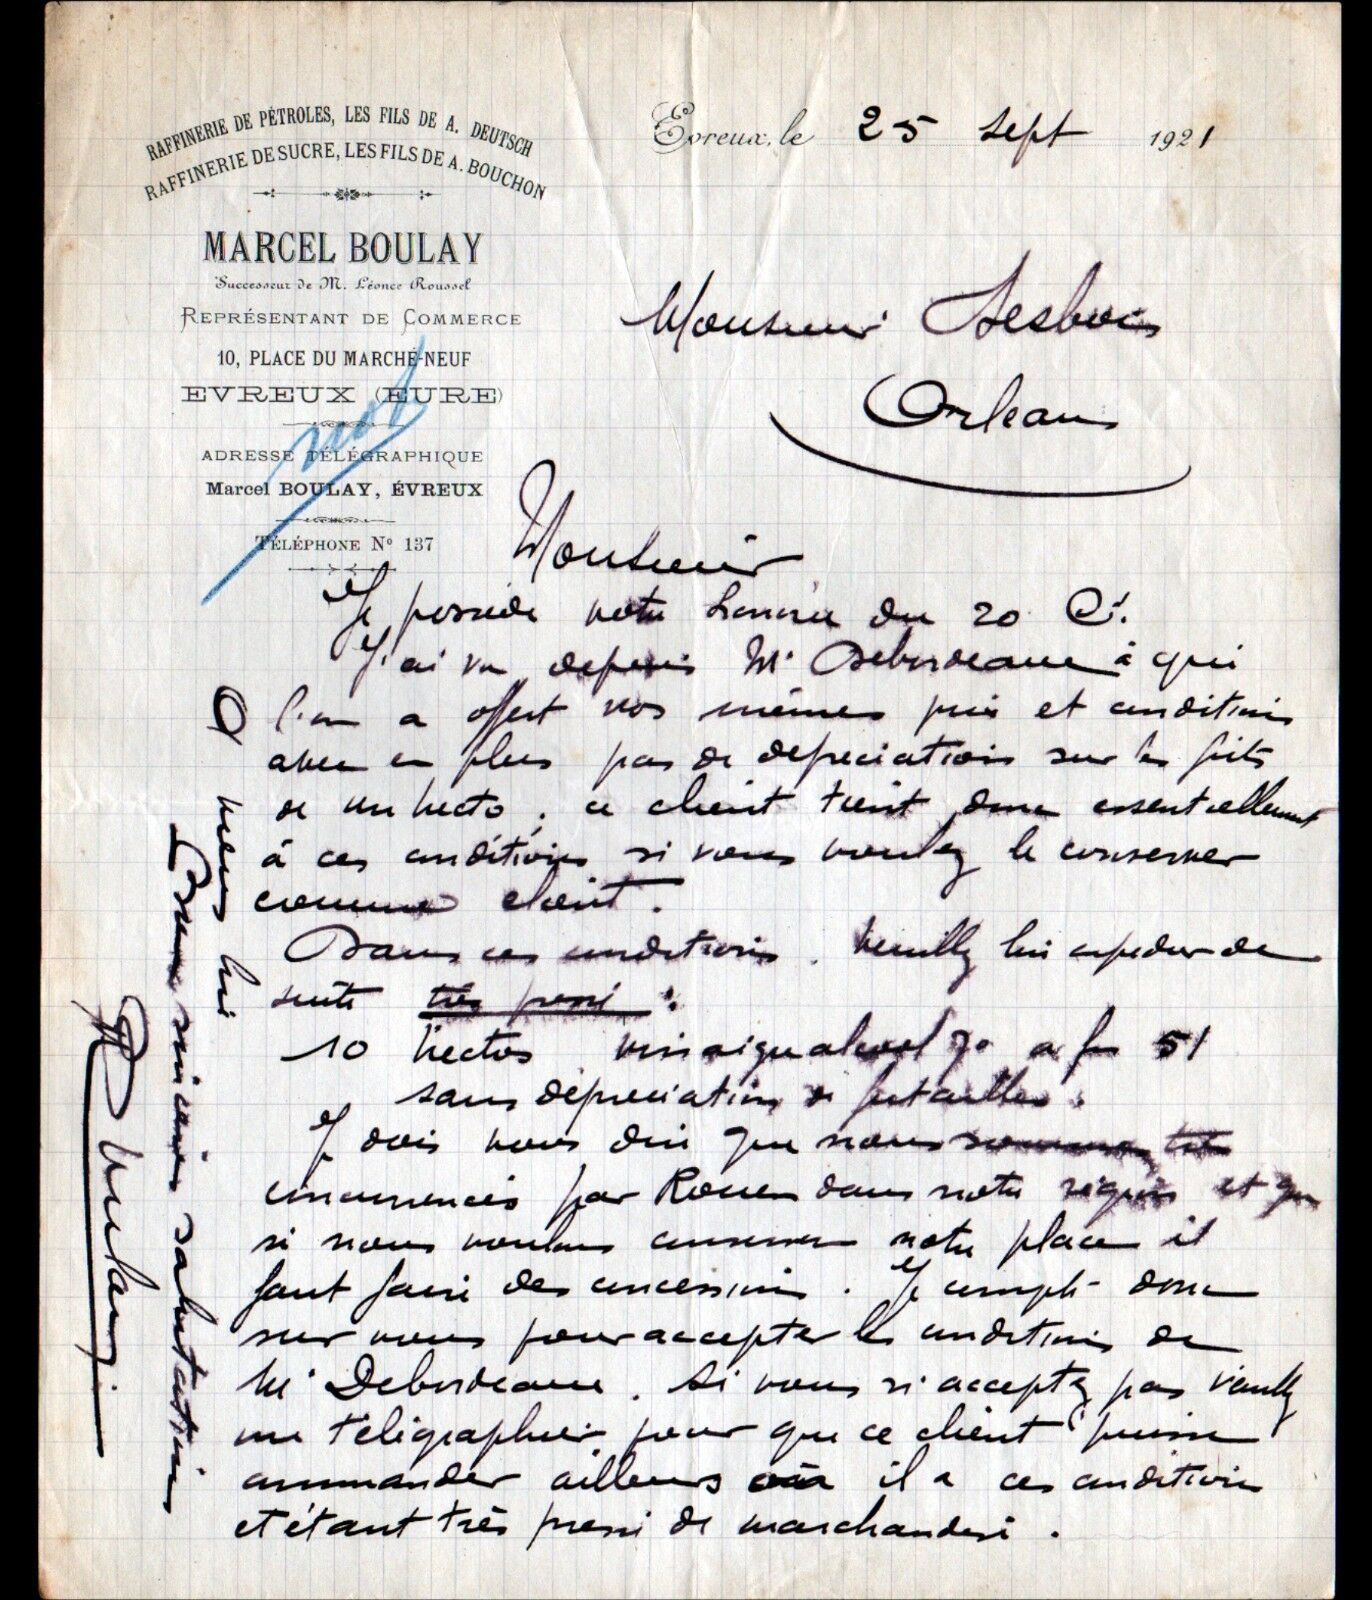 RAFFINERIE DE PÉTROLES, LES FILS DE A. DEUTSCH
RAFFINERIE DE SUCRE, LES FILS DE A. BOUCHON
MARCEL BOULAY
Successeur de M. Léonce Roussel
REPRÉSENTANT DE COMMERCE
10, PLACE DU MARCHÉ-NEUF
EVREUX (EURE)
ADRESSE TÉLÉGRAPHIQUE
Marcel BOULAY, ÉVREUX
TÉLÉPHONE Nº 137
Evreux, le 25 Sept 1921
Monsieur
Orleans
Monsieur
Je possède votre du 20 Ct.
J'ai vu depuis Mr Debordeaux à qui
l'on a offert vos mêmes prix et conditions
avec en plus pas de depreciation sur les fûts
de un hecto. ce client tient donc essentiellement
à ces conditions si vous voulez le conserver
comme client.
Dans ces conditions. Veuillez lui expedier de
suite très pressé :
10 hectos vinaigre alcool 7º a f 51
sans dépréciation de futailles.
Je dois vous dire que nous sommes très
concurrencés par Rouen dans notre région et que
si nous voulons conserver notre place il
faut faire des concessions. Je compte donc
sur vous pour accepter les conditions de
Mr Debordeaux. Si vous n'acceptez pas veuillez
me télégraphier pour que ce client puisse
commander ailleurs où il a ces conditions
et étant très pressé de marchandise.
Bien sincères salutations
M Boulay